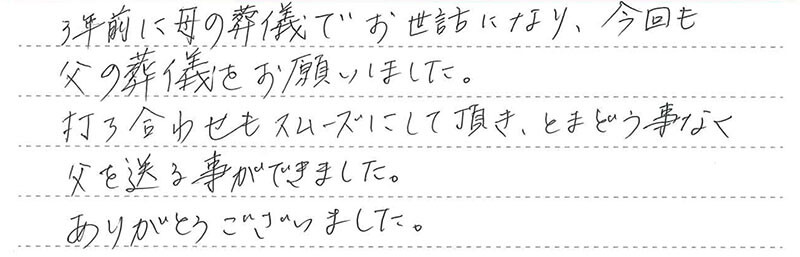 3年前に母の葬儀でお世話になり、今回も
父の葬儀をお願いしました。
打ち合わせもスムーズにして頂き、とまどう事なく
父を送る事ができました。
ありがとうございました。